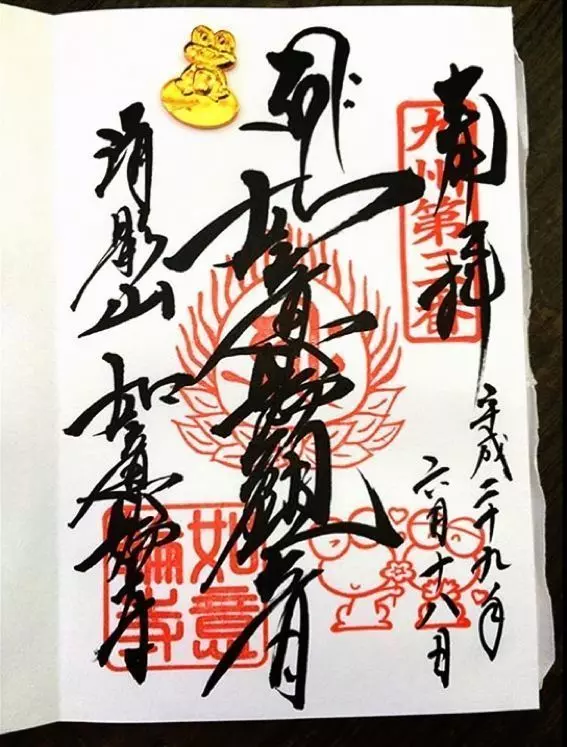 奉拝
九州第三番
平成二十九年
六月十八日
如意輪観音
清影山
如意輪寺
如意
輪寺